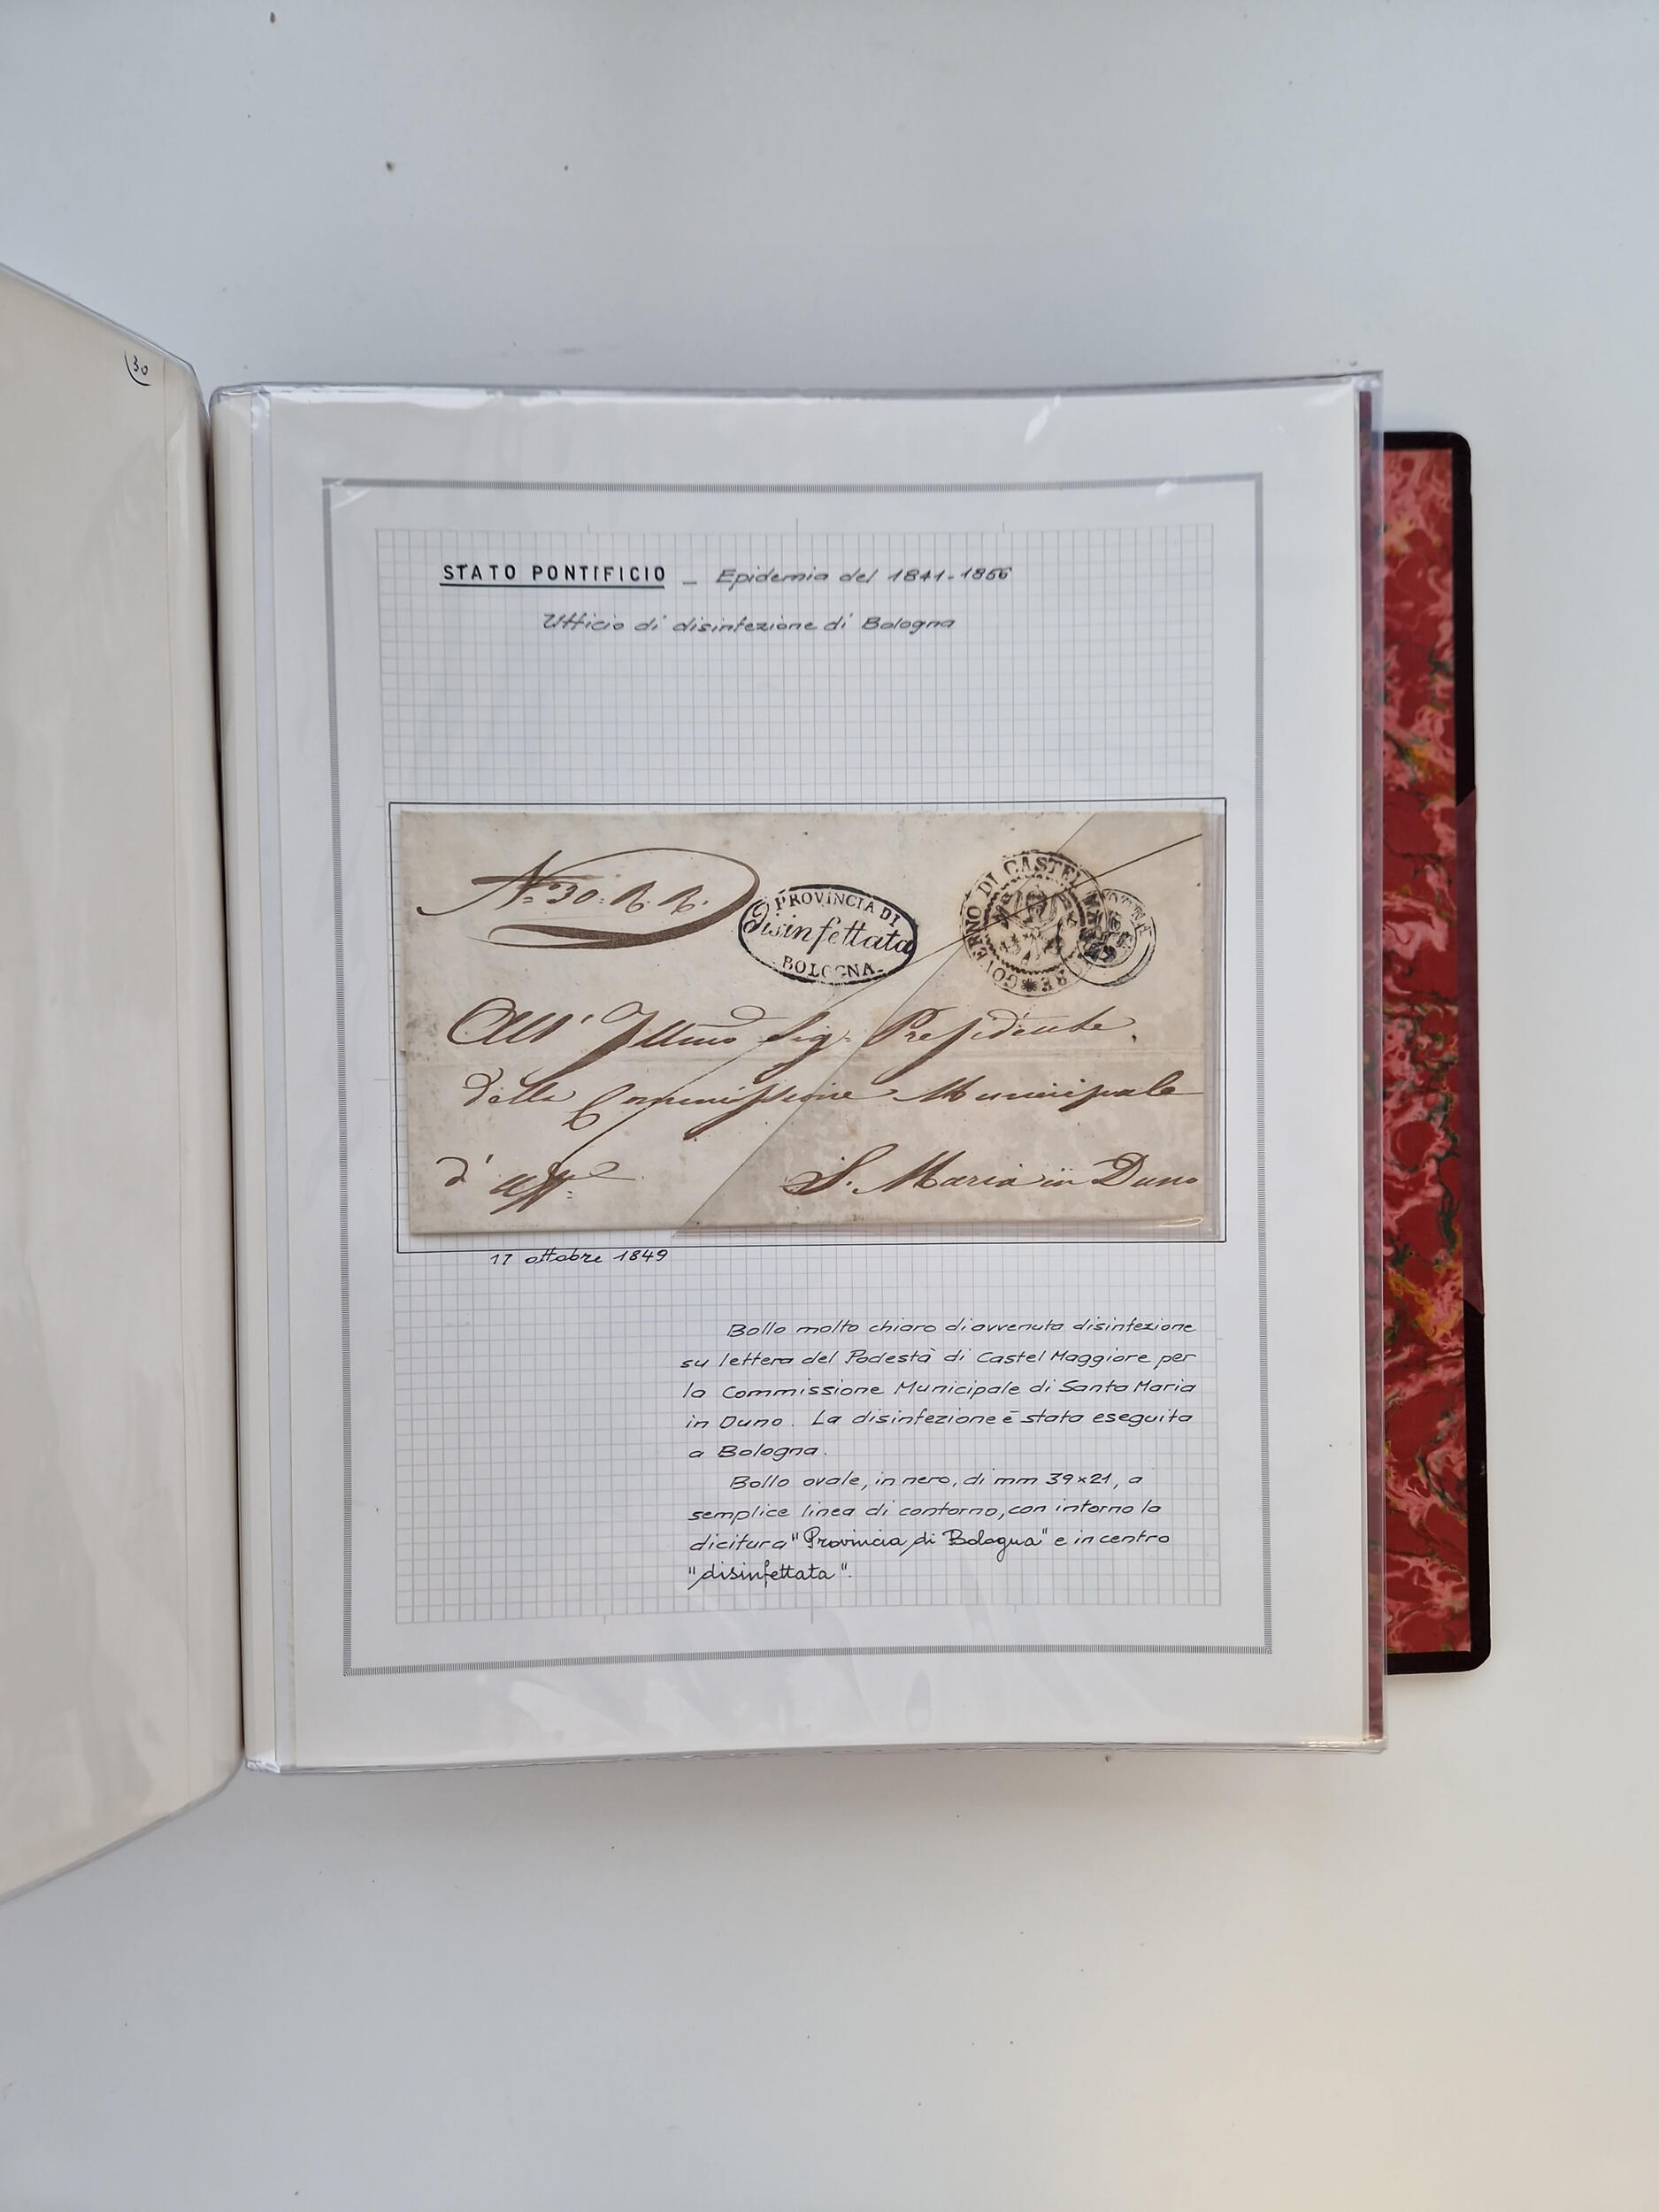 30
STATO PONTIFICIO _ Epidemia del 1841-1856
Ufficio di disinfezione di Bologna
N.° 30. P. P.
PROVINCIA DI
Disinfettata
BOLOGNA
GOVERNO DI CASTEL MAGGIORE
All' Illmo Sig. Presidente
della Commissione Municipale
d' uff.°
S. Maria in Duno
17 ottobre 1849
Bollo molto chiaro di avvenuta disinfezione
su lettera del Podestà di Castel Maggiore per
la Commissione Municipale di Santa Maria
in Duno. La disinfezione è stata eseguita
a Bologna.
Bollo ovale, in nero, di mm 39x21, a
semplice linea di contorno, con intorno la
dicitura "Provincia di Bologna" e in centro
"disinfettata".